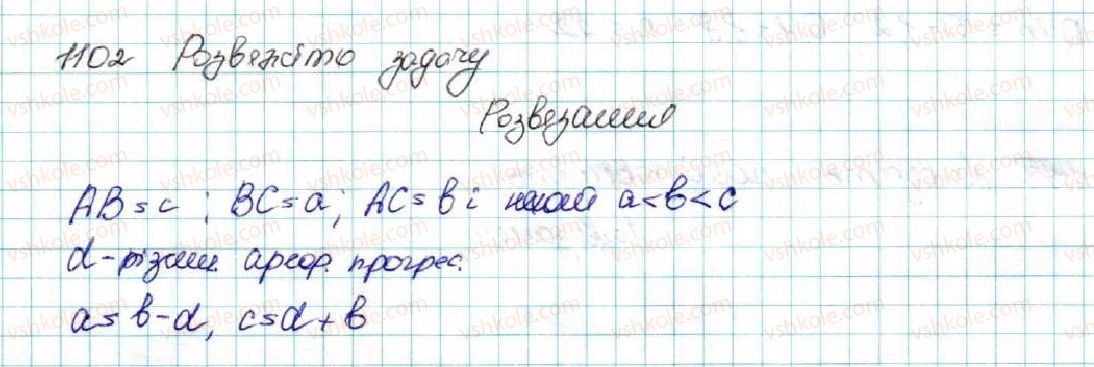 1102 Розвяжіть задачу
Розвязання
AB = c ; BC = a ; AC = b і нехай a < b < c
d - різниц. арифр. прогрес.
a = b - d, c = d + b